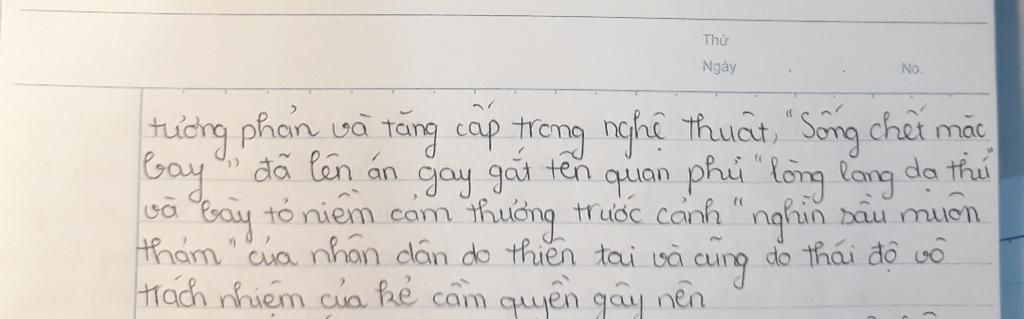 Thứ
Ngày . . No.
tương phản và tăng cấp trong nghệ thuật, "Sống chết mặc
bay" đã lên án gay gắt tên quan phủ "lòng lang dạ thú"
và bày tỏ niềm cảm thương trước cảnh "nghìn sầu muôn
thảm" của nhân dân do thiên tai và cũng do thái độ vô
trách nhiệm của kẻ cầm quyền gây nên